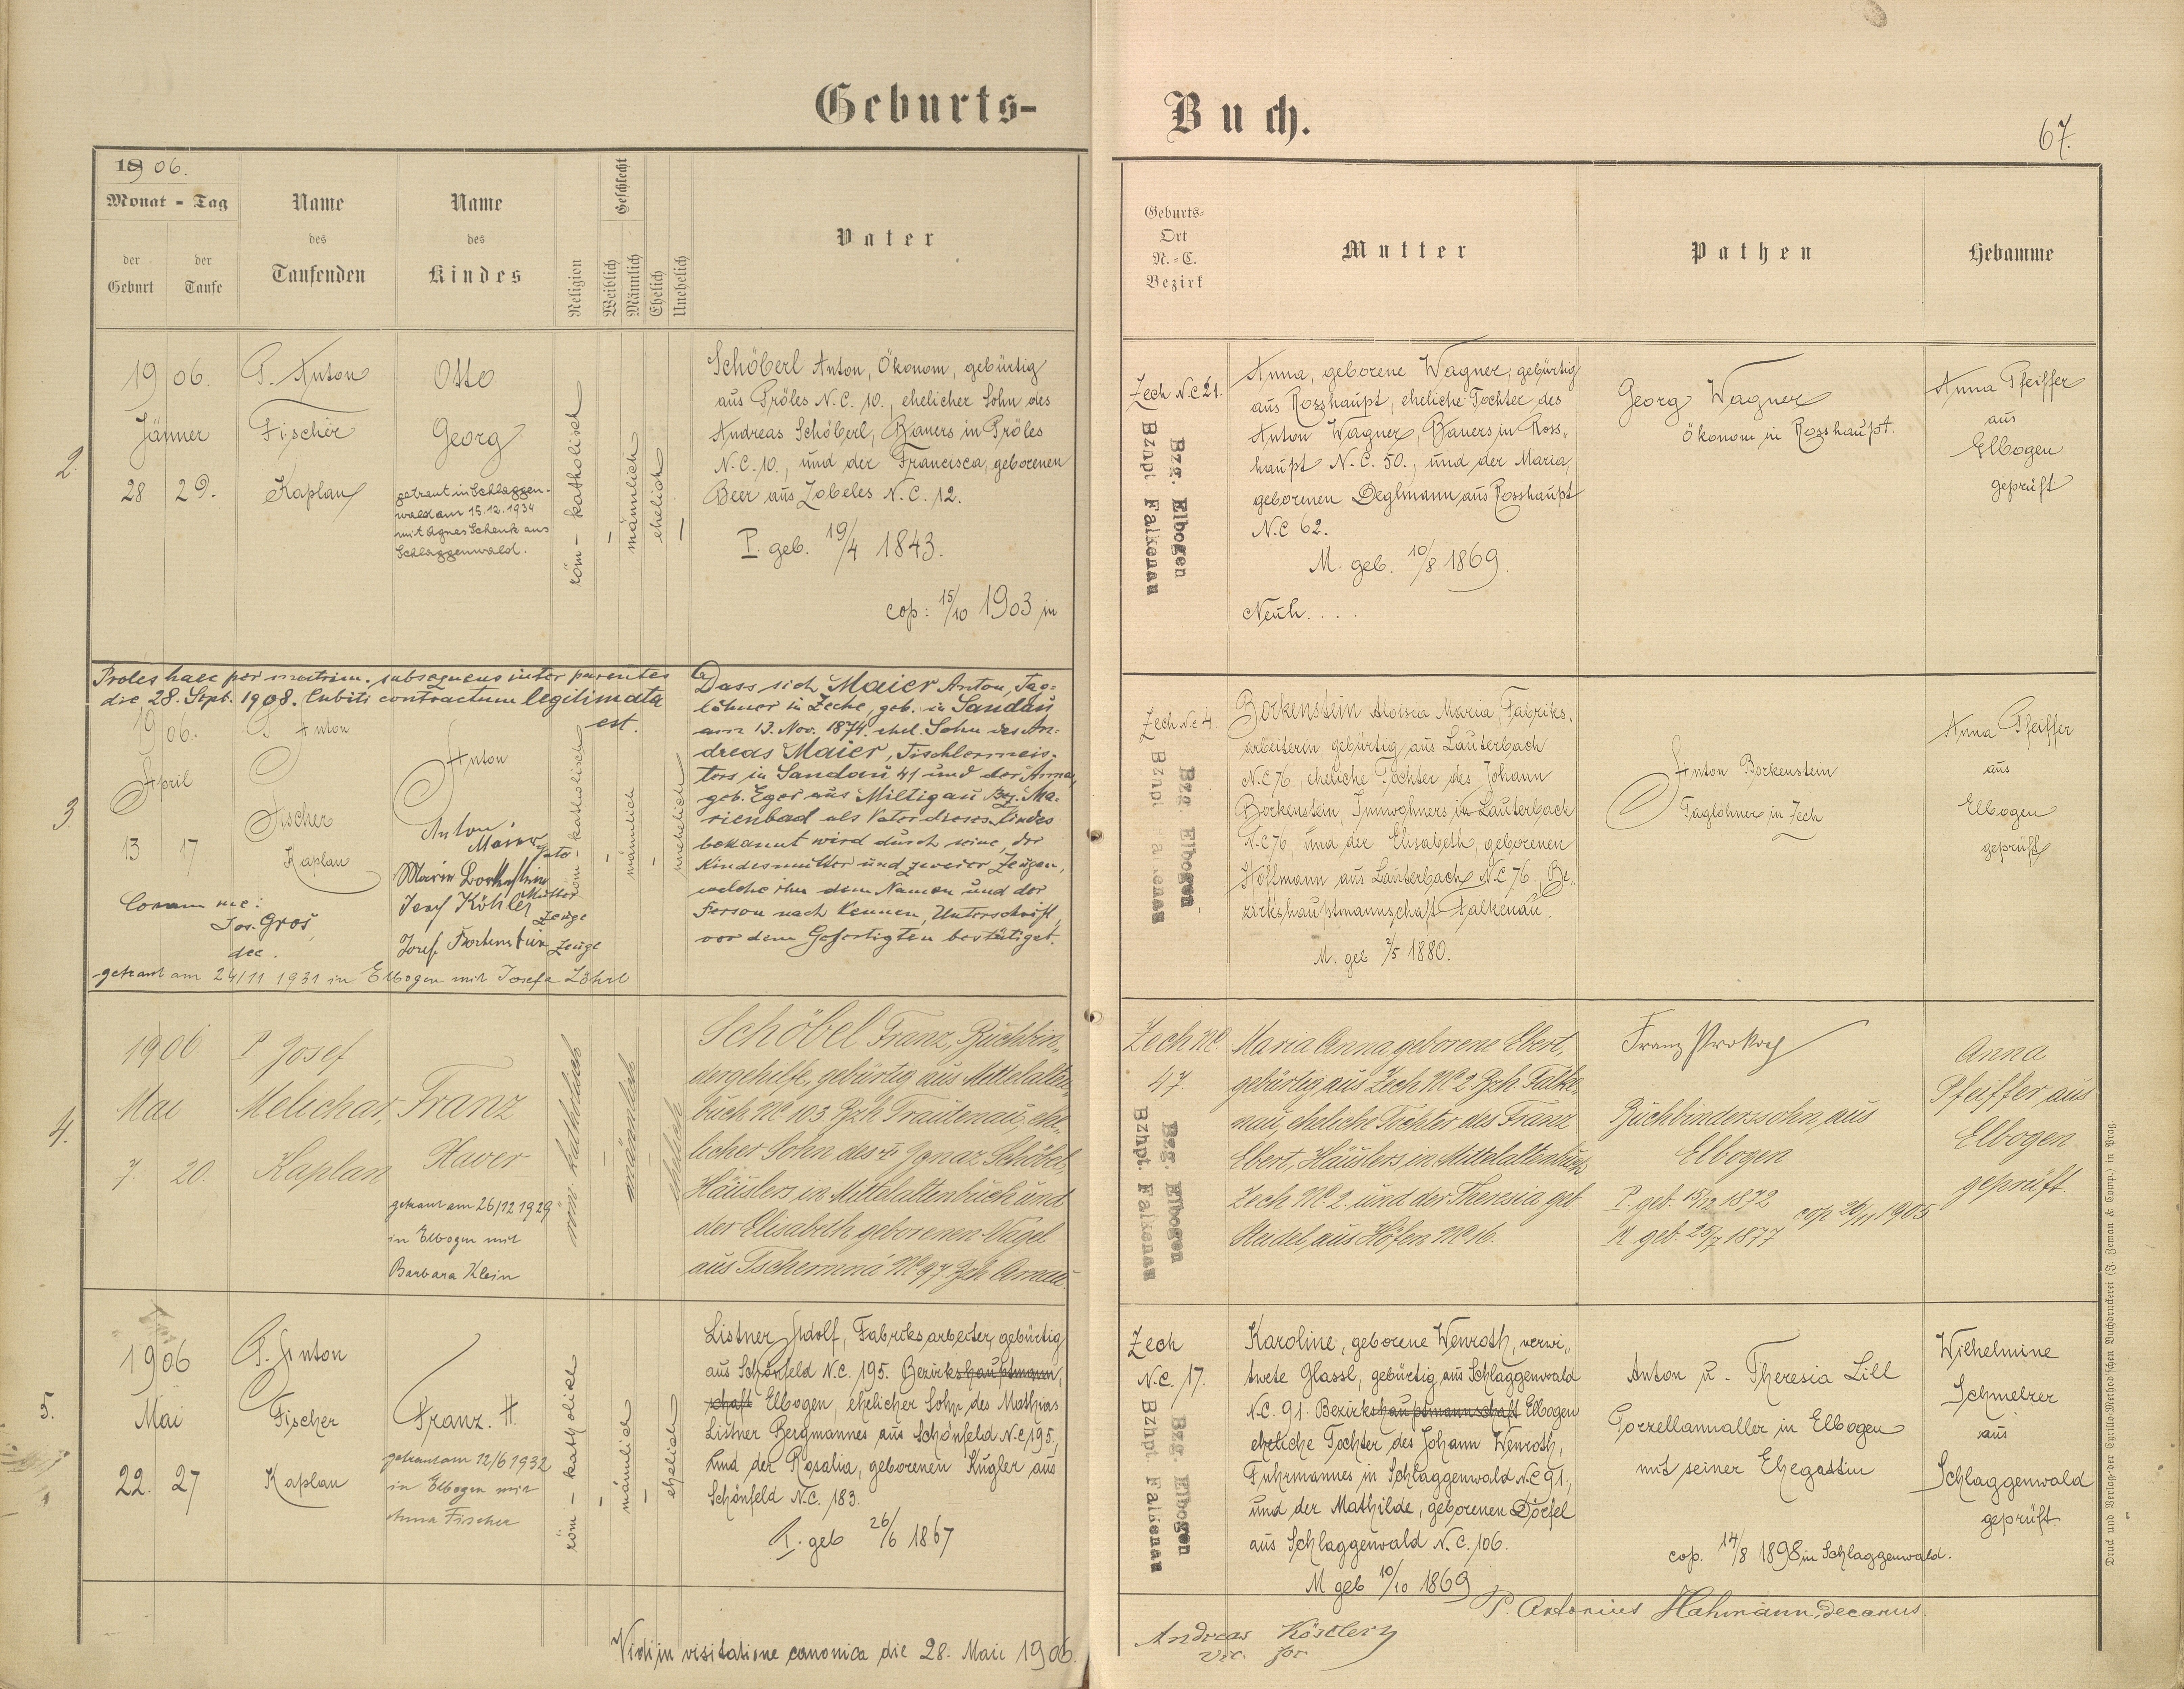 Geburts-
Buch.
67.
1906.
Monat - Tag
der Geburt
der Taufe
Name des Taufenden
Name des Kindes
Religion
Geschlecht
Weiblich
Männlich
Ehelich
Unehelich
Vater
Geburts-Ort N.-C. Bezirk
Mutter
Pathen
Hebamme
2.
1906.
Jänner
28 29.
P. Anton
Fischer
Kaplan
Otto
Georg
getraut in Schlaggen-
wald am 15.12.1934
mit Agnes Schenk aus
Schlaggenwald.
röm - katholisch
männlich
ehelich
Schöberl Anton, Ökonom, gebürtig
aus Pröles N.C. 10., ehelicher Sohn des
Andreas Schöberl, Bauers in Pröles
N.C. 10., und der Francisca, geborenen
Beer aus Zobeles N.C. 12.
P. geb. 19/4 1843.
cop: 15/10 1903 in
Zech N.C 21.
Bzg. Elbogen
Bzhpt. Falkenau
Anna, geborene Wagner, gebürtig
aus Rosshaupt, eheliche Tochter des
Anton Wagner, Bauers in Ross-
haupt N.C. 50., und der Maria,
geborenen Deglmann aus Rosshaupt
N.C 62.
M. geb. 10/8 1869.
Neuh....
Georg Wagner
Ökonom in Rosshaupt.
Anna Pfeiffer
aus
Elbogen
geprüft
3.
Proles haec per matrim. subsequens inter parentes
die 28. Sept. 1908. Cubiti contractum legitimata
est.
1906.
April
13 17
P. Anton
Fischer
Kaplan
Coram me:
Jos. Groš,
dec.
Anton
Anton
Maier
Vater
Marie Borkenstein
Mutter
Josef Köhler
Zeuge
Josef Borkenstein Zeuge
getraut am 24/11 1931 in Elbogen mit Josefa Löhrl
röm - katholisch
männlich
unehelich
Dass sich Maier Anton, Tag-
löhner in Zeche, geb. in Sandau
am 13. Nov. 1874. ehel. Sohn des An-
dreas Maier, Tischlermeis-
ters in Sandau 41 und der Anna,
geb. Eger aus Miltigau Bez. Ma-
rienbad als Vater dieses Kindes
bekannt wird durch seine, der
Kindesmutter und zweier Zeugen,
welche ihn dem Namen und der
Person nach kennen, Unterschrift,
vor dem Gefertigten bestätiget.
Zech N.C 4.
Bzg. Elbogen
Bzhpt. Falkenau
Borkenstein Aloisia Maria Fabriks-
arbeiterin, gebürtig aus Lauterbach
N.C 76, eheliche Tochter des Johann
Borkenstein, Inwohners in Lauterbach
N.C 76, und der Elisabeth, geborenen
Hoffmann aus Lauterbach N.C 76. Be-
zirkshauptmannschaft Falkenau.
M. geb 7/5 1880.
Anton Borkenstein
Taglöhner in Zech
Anna Pfeiffer
aus
Elbogen
geprüft
4.
1906
Mai
7. 20.
P. Josef
Melichar,
Kaplan
Franz
Xaver
getraut am 26/12 1929
in Elbogen mit
Barbara Klein
röm. katholisch
männlich
ehelich
Schöbel Franz, Buchbin-
dergehilfe, gebürtig aus Mittelalten-
buch NC 103 Bzh Trautenau, ehe-
licher Sohn des † Ignaz Schöbel,
Häuslers in Mittelaltenbuch und
der Elisabeth geborenen Vagel
aus Tschermná NC 97. Bzh Arnau
Zech NC.
47.
Bzg. Elbogen
Bzhpt. Falkenau
Maria Anna geborene Ebert,
gebürtig aus Zech NC 2 Bzh Falke-
nau, eheliche Tochter des Franz
Ebert, Häuslers in Mittelaltenbuch
Zech NC 2. und der Theresia geb
Steidel, aus Höfen NC 16.
Franz Prokop
Buchbinderssohn aus
Elbogen
P. geb. 15/12 1872
M. geb. 25/7 1877
cop 26/11 1905
Anna
Pfeiffer aus
Elbogen
geprüft.
5.
1906
Mai
22. 27
P. Anton
Fischer
Kaplan
Franz. H.
getraut am 12/6 1932
in Elbogen mit
Anna Fischer
röm - katholisch
männlich
ehelich
Listner Adolf, Fabriksarbeiter, gebürtig
aus Schönfeld N.C. 195. Bezirkshauptmann-
schaft Elbogen, ehelicher Sohn des Mathias
Listner Bergmannes aus Schönfeld N.C 195,
und der Rosalia, geborenen Kugler aus
Schönfeld N.C. 183.
P. geb 26/6 1867
Zech
N.C. 17.
Bzg. Elbogen
Bzhpt. Falkenau
Karoline, geborene Wenroth, verwi-
twete Glassl, gebürtig aus Schlaggenwald
N.C. 91. Bezirkshauptmannschaft Elbogen
eheliche Tochter des Johann Wenroth,
Fuhrmannes in Schlaggenwald N.C 91.,
und der Mathilde, geborenen Dörfel
aus Schlaggenwald N.C. 106.
M geb 10/10 1869
Anton u. Theresia Lill
Porzellanmaller in Elbogen
mit seiner Ehegattin
cop. 14/8 1898 in Schlaggenwald.
Wilhelmine
Schmelzer
aus
Schlaggenwald
geprüft.
Vidi in visitatione canonica die 28. Maii 1906.
P. Antonius Hahmann, decanus.
Andreas Köstlery
vic. for
Druck und Verlag der Cyrillo-Method'schen Buchdruckerei (J. Zeman & Comp.) in Prag.